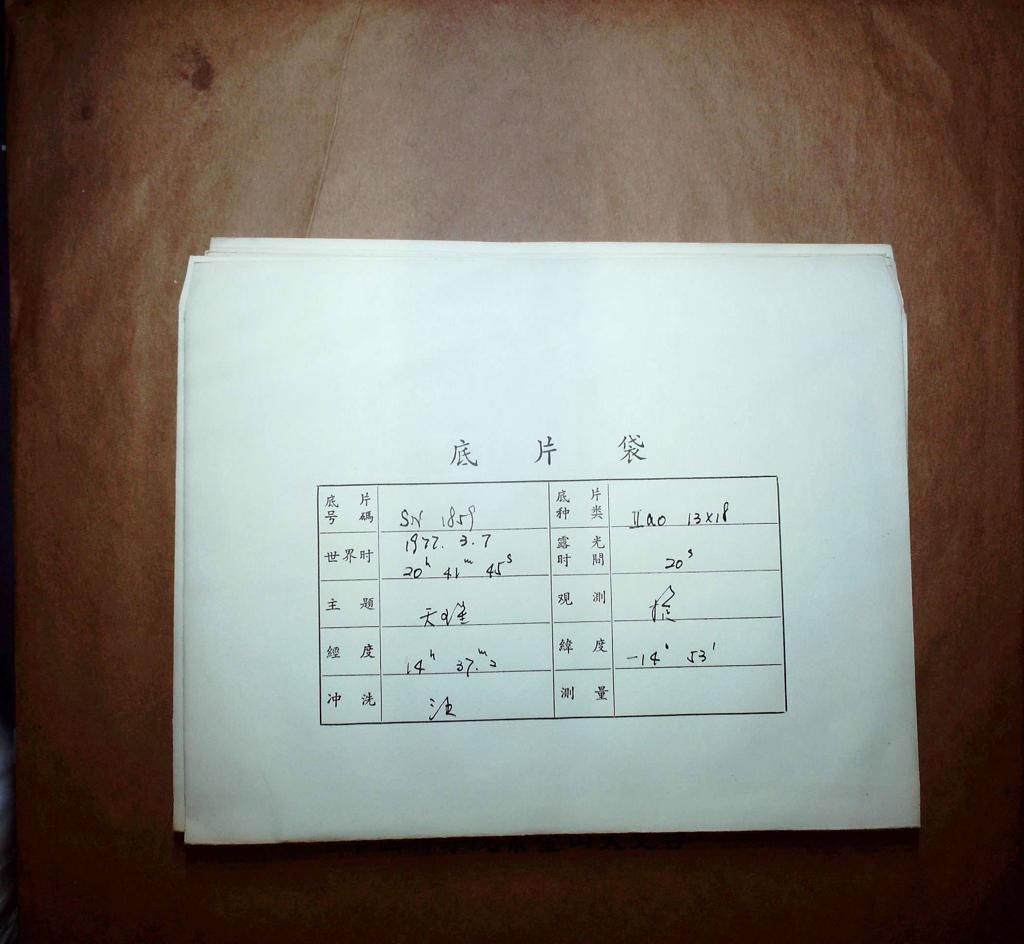 底片袋
底片号碼 SN 1859 底片种类 IIaO 13×18
世界时 1977. 3. 7 20ʰ 41ᵐ 45ˢ 露光时間 20ˢ
主題 天王星 观測
經度 14ʰ 37.ᵐ2 緯度 -14° 53′
冲洗 測量